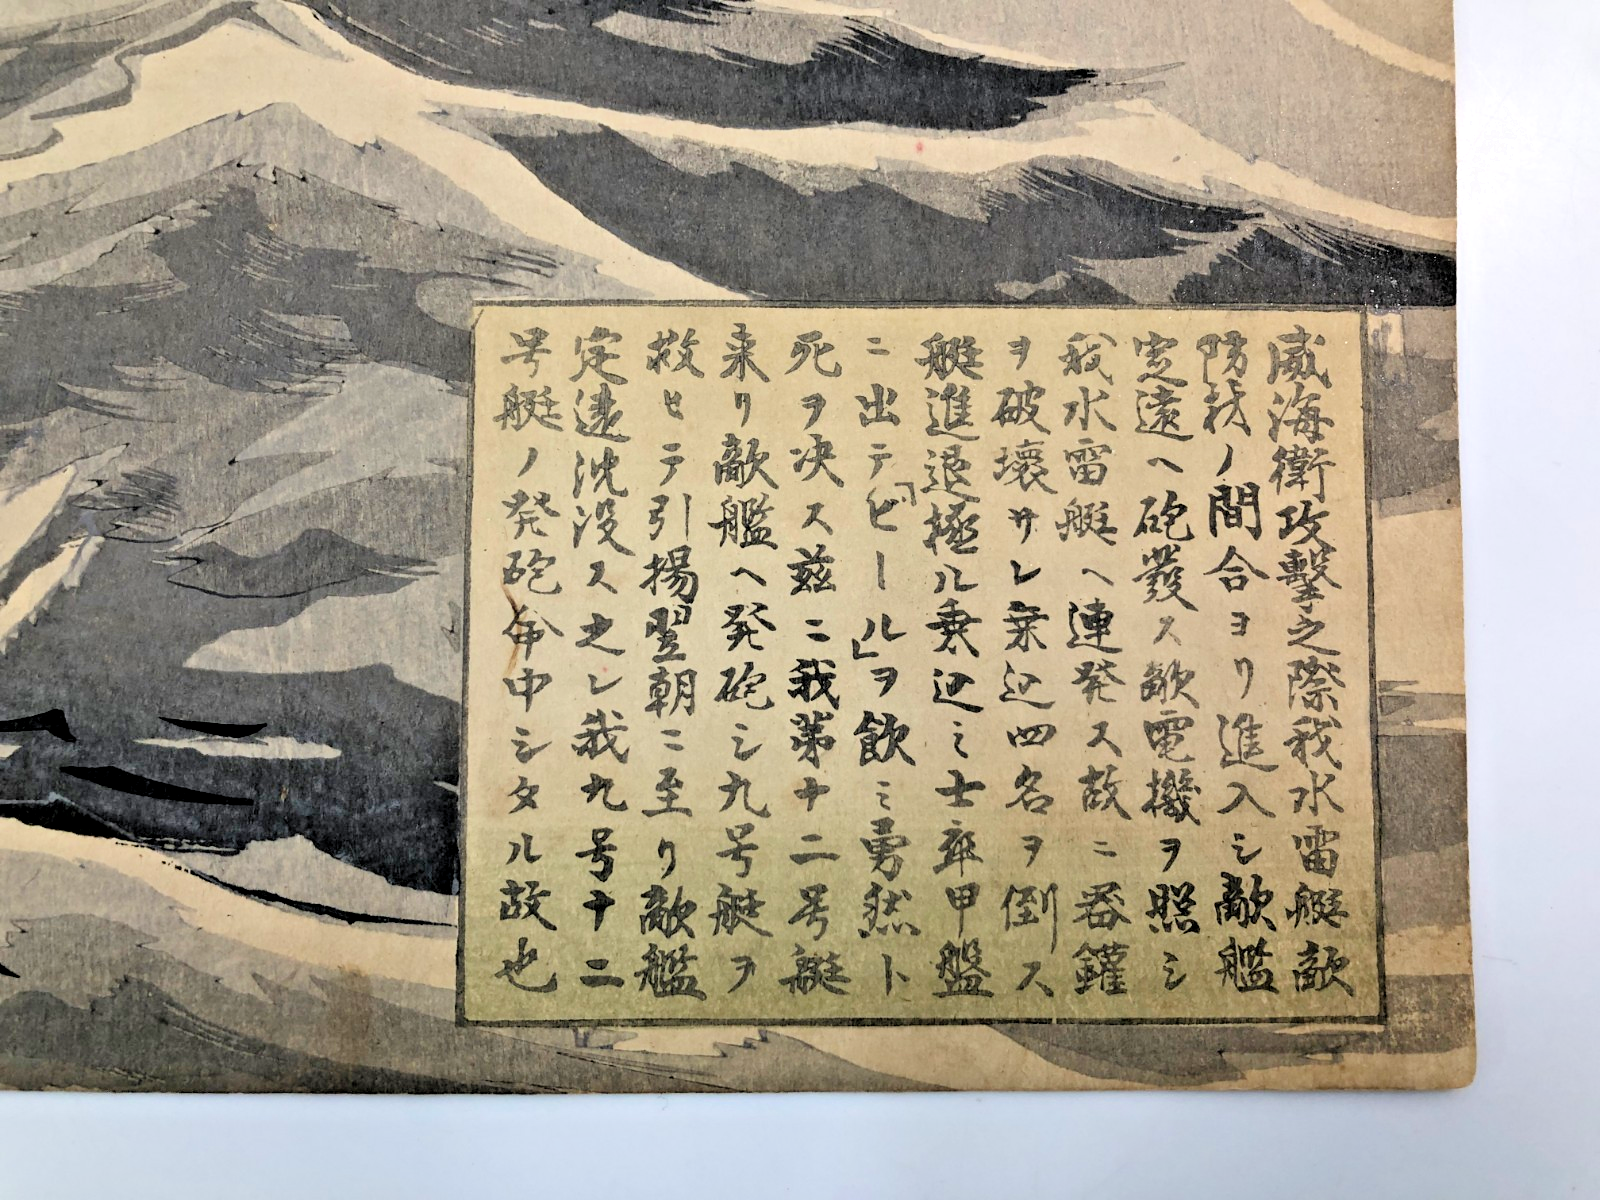 威海衛攻擊之際我水雷艇敵
防我ノ間合ヨリ進入シ敵艦
定遠ヘ砲發ス敵電機ヲ照シ
我水雷艇ヘ連発ス故ニ器鑵
ヲ破壊サレ乗込四名ヲ倒ス
艇進退極ル乗込ミ士卒甲盤
ニ出テ「ビール」ヲ飲ミ勇然ト
死ヲ决ス茲ニ我第十二号艇
来リ敵艦ヘ発砲シ九号艇ヲ
救ヒテ引揚翌朝ニ至リ敵艦
定遠沈没ス之レ我九号十二
号艇ノ発砲命中シタル故也